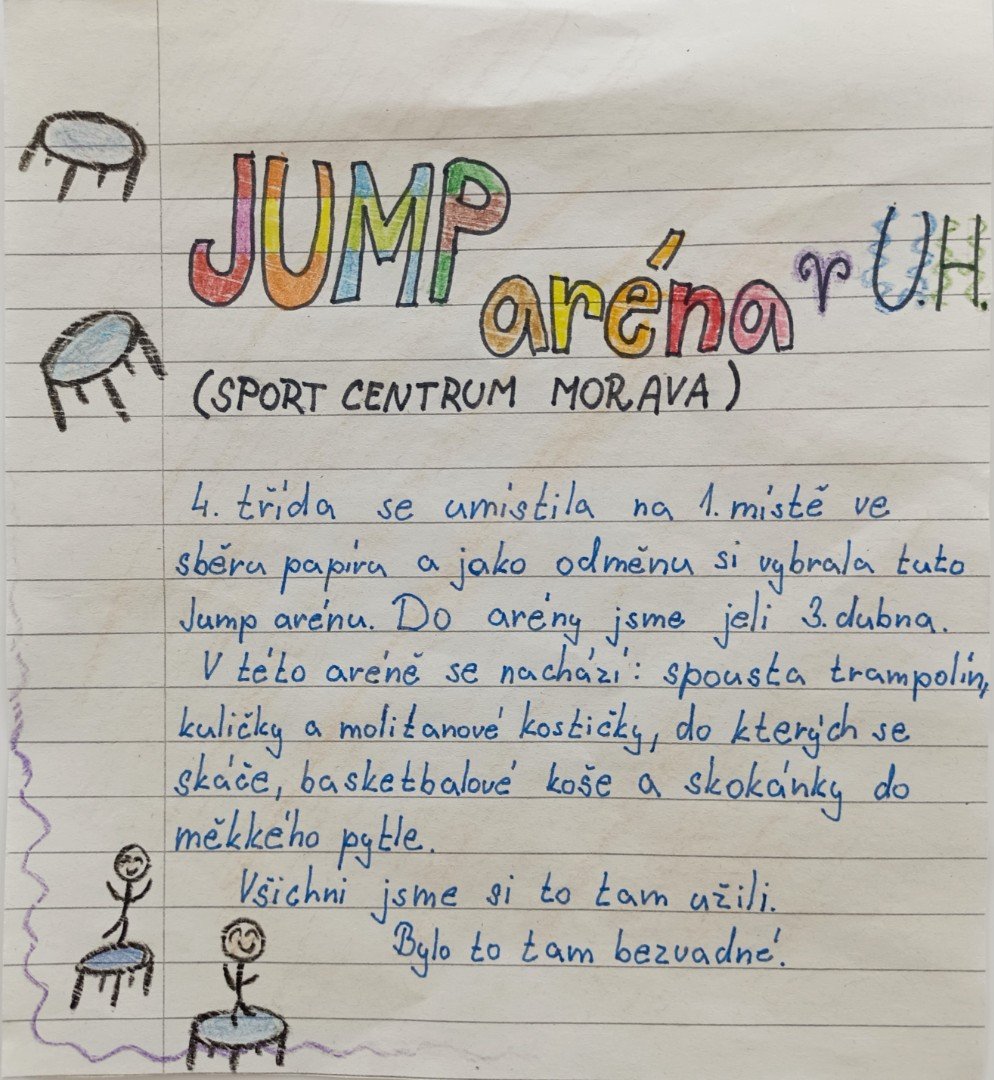 JUMP aréna v U.H.
(SPORT CENTRUM MORAVA)
4. třída se umístila na 1. místě ve
sběru papíru a jako odměnu si vybrala tuto
Jump arénu. Do arény jsme jeli 3. dubna.
V této aréně se nachází: spousta trampolín,
kuličky a molitanové kostičky, do kterých se
skáče, basketbalové koše a skokánky do
měkkého pytle.
Všichni jsme si to tam užili.
Bylo to tam bezvadné.